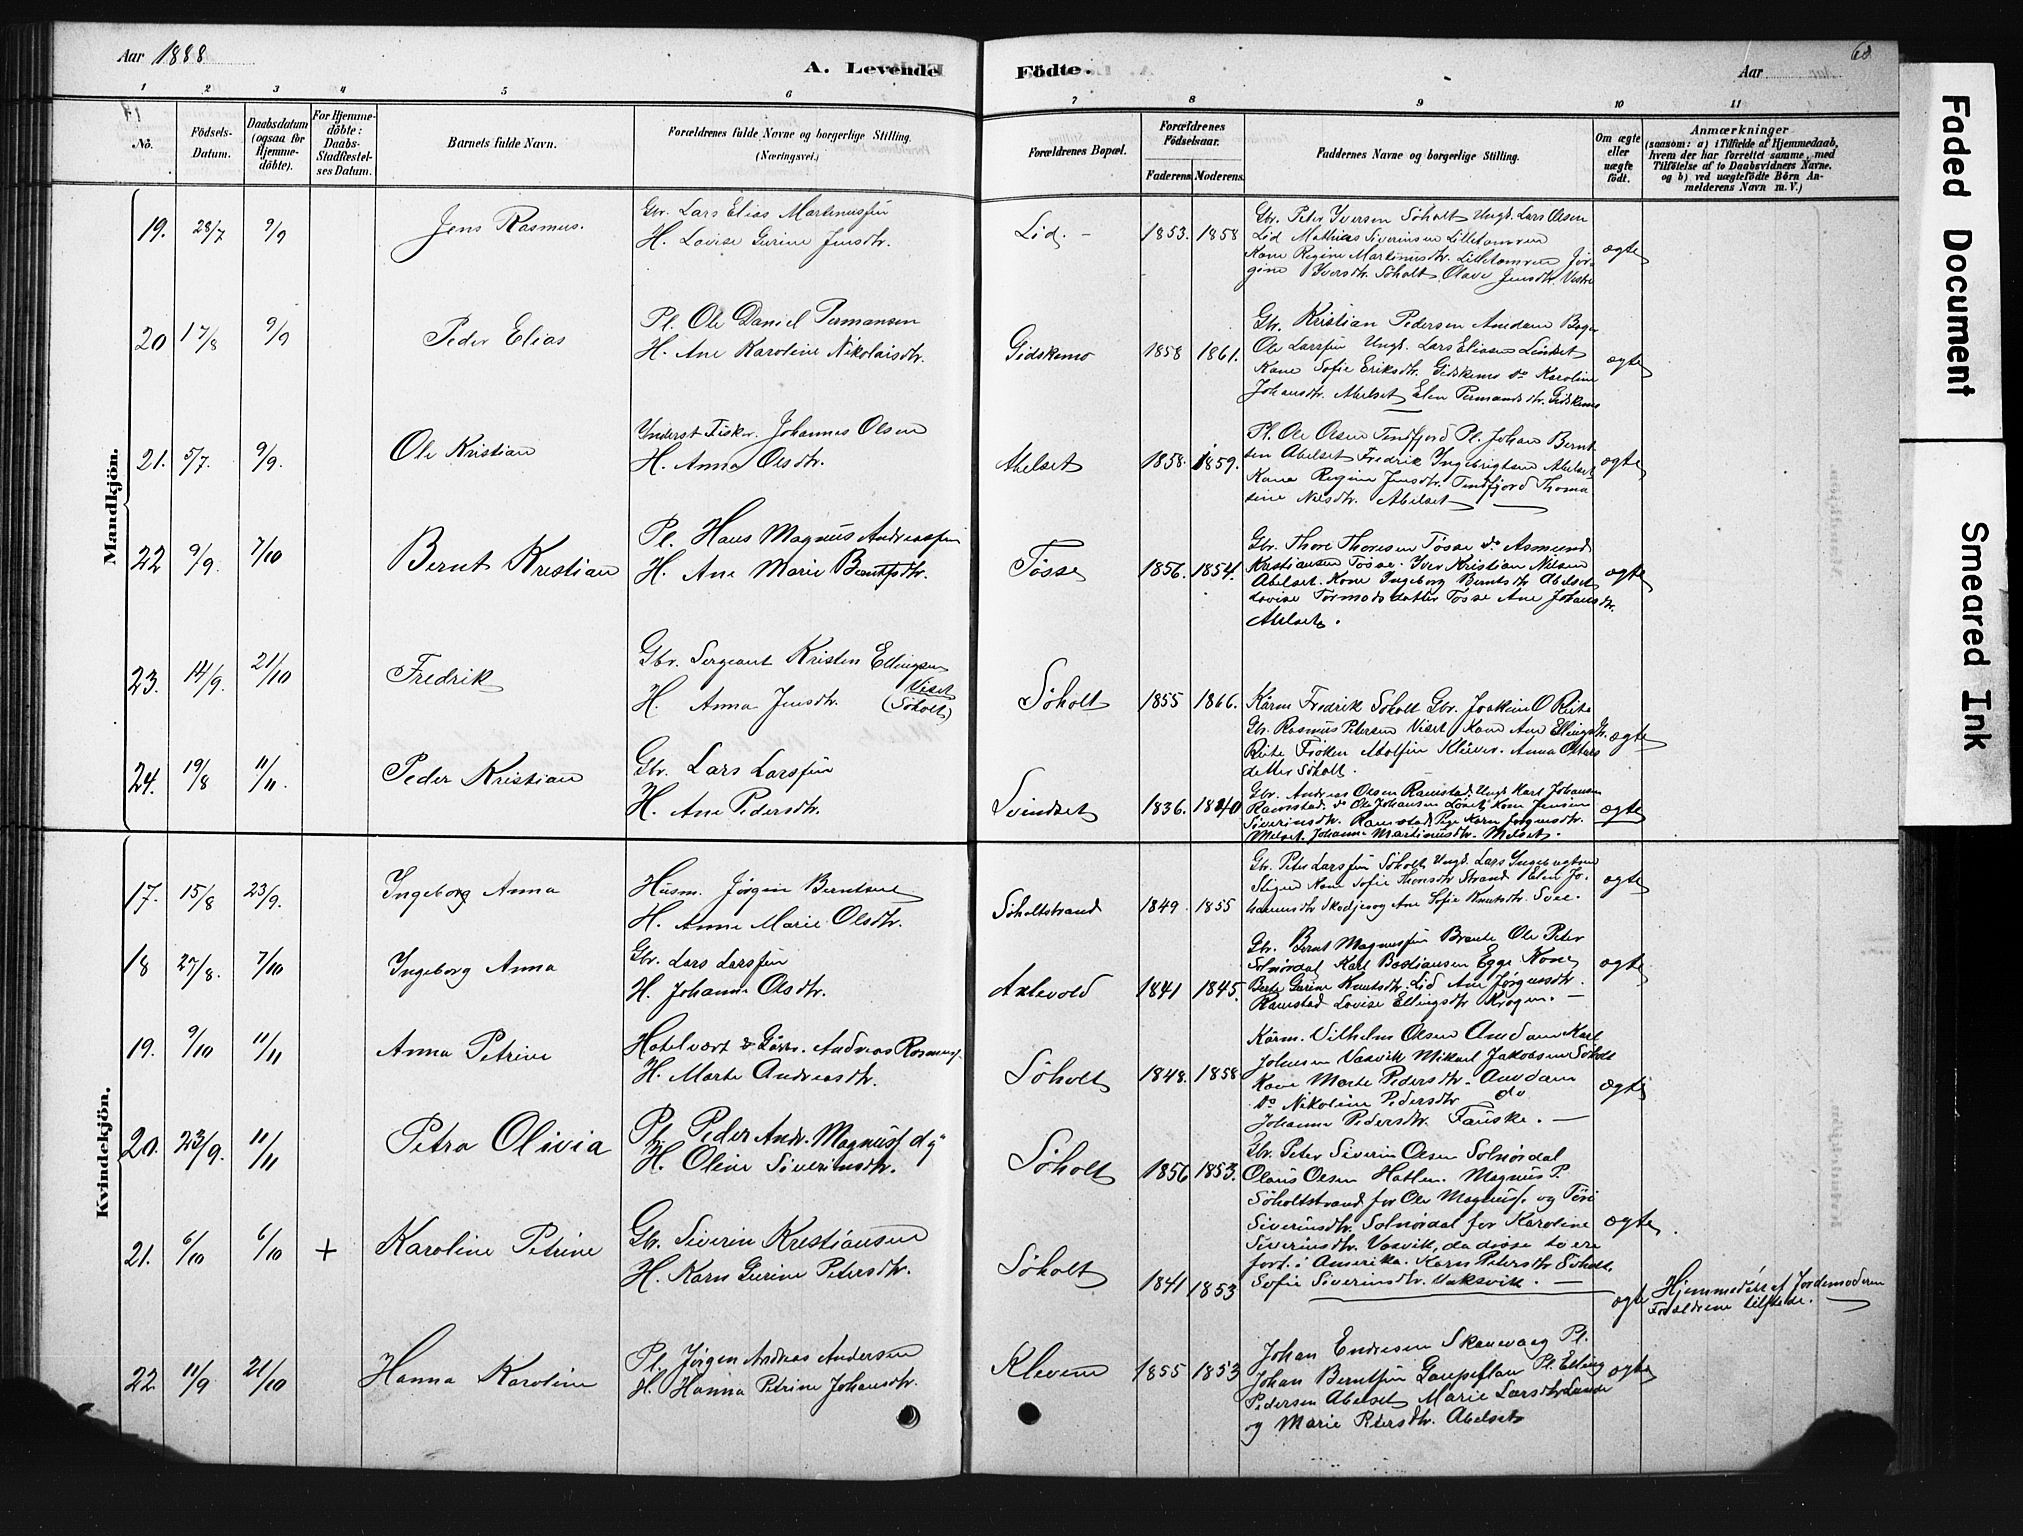 Aar 1888
A. Levende Födte.
Aar
68
1 2 3 4 5 6 7 8 9 10 11
No.
Födsels-Datum.
Daabsdatum (ogsaa for Hjemme-döbte).
For Hjemme-döbte: Daabs-Stadfestel-ses Datum.
Barnets fulde Navn.
Forældrenes fulde Navne og borgerlige Stilling. (Næringsvei.)
Forældrenes Bopæl.
Forældrenes Födselsaar.
Faderens Moderens
Faddernes Navne og borgerlige Stilling.
Om ægte eller uægte födt.
Anmærkninger
(saasom: a) i Tilfælde af Hjemmedaab,
hvem der har forrettet samme, med
Tilföielse af to Daabsvidners Navne.
og b) ved uægtefödte Börn An-
melderens Navn m. V.)
Mandkjön.
19. 28/7 9/9 Jens Rasmus.
Gbr. Lars Elias Martinussen
H. Lovise Gurine Jensdtr.
Lid. 1853. 1858
Gbr. Peter Iversen Söholt Ungk. Lars Olsen
Lid Mathias Siverinsen Lilletomren
Kone Regine Martinusdtr. Lilletomren Jör-
gine Iversdtr. Söholt Olave Jensdtr. Vestre
ægte
20 17/8 9/9 Peder Elias
Pl. Ole Daniel Permansen
H. Ane Karoline Nikolaisdtr.
Gidskemo 1858 1861.
Gbr. Kristian Pedersen Amdam
Ole Larssen Ungk. Lars Eliasen
Kone Sofie Eriksdtr. Gidskemo do Karoline
Johansdtr. Abelset Elen Permandsdtr. Gidskemo
ægte
21. 5/7. 9/9. Ole Kristian
Inderst Fisker Johannes Olsen
H. Anna Olsdtr.
Abelset 1858. 1859.
Pl. Ole Olsen Tindfjord Pl. Johan Bernt-
sen Abelset Fredrik Ingebrigtsen Abelset
Kone Regine Jensdtr. Tindfjord Thoma-
sine Nilsdtr. Abelset
ægte
22 9/9. 7/10 Bernt Kristian
Pl. Hans Magnus Andreassen
H. Ane Marie Berntsdtr.
Tösse 1856. 1854.
Gbr. Thore Thoresen Tösse do Asmund
Kristiansen Tösse. Iver Kristian Nilsen
Abelset. Kone Ingeborg Berntsdtr Abelset
Lovise Tormodsdatter Tösse Ane Johansdtr.
Abelset.
ægte
23. 14/9. 21/10 Fredrik
Gbr. Sergeant Kristen Ellingsen
Viset
H. Anna Jensdtr. (Söholt)
Söholt 1855 1866.
Fredrik Söholt Gbr. Joakim O Reite
Gbr. Rasmus Petersen Viset Kone Ane Ellingsdtr.
Reite Fröken Adolfin Klüver. Anna
datter Söholt.
ægte
24. 19/8 11/11. Peder Kristian
Gbr. Lars Larssen
H. Ane Pedersdtr.
Svindset 1836. 1840
Gbr. Andreas Olsen Ramstad Ungk Karl Johansen
Ramstad. do Ole Johansen Kone Jensine
Siverinsdtr. Ramstad Pige Karn Jörgensdtr.
Melset. Johanne Martinusdtr. Melset.
ægte
Kvindekjön.
17. 15/8 23/9. Ingeborg Anna
Husm. Jörgen Berntsen
H. Anne Marie Olsdtr.
Söholtstrand 1849. 1855
Gbr. Peter Larssen Söholt Ungk. Lars Ingebrigtsen
Stigen Kone Sofie Thorsdtr Strand Elen Jo-
hannesdtr Skodje og Ane Sofie Knutsdtr.
ægte
18 27/8. 7/10 Ingeborg Anna
Gbr. Lars Larssen
H. Johanne Olsdtr.
Axlevold 1841 1845.
Gbr. Bernt Magnussen Braute Ole Peter
Solnördal Karl Bastiansen Egge Kone
Berte Gurine Knutsdtr. Lid Ane Jörgensdtr.
Ramstad Lovise Ellingsdtr Krogen.
ægte
19. 9/10 11/11 Anna Petrine
Hotelvært & Gbr. Andreas Rasmuss.
H. Marte Andreasdtr.
Söholt 1848. 1858
Vilhelm Olsen Amdam Karl
Johnsen Vasvik Mikael Jakobsen Söholt
Kone Marte Pedersdtr. Amdam
do Nikoline Pedersdtr do
Johanne Pedersdtr. Fauske.
ægte
20. 23/9. 11/11 Petra Olivia
Pl. Peder Andr. Magnuss. dy
H. Oline Siverinsdtr.
Söholt 1856 1853.
Gbr. Peter Siverin Olsen Solnördal
Olaus Olsen Hatlen. Magnus P.
Söholtstrand for Ole Magnuss. og
Siverinsdtr. Solnördal for Karoline
Siverinsdtr. Vasvik, da disse to ere
for. i Amerika. Karn Petersdtr Söholt.
Sofie Siverinsdtr. Vaksvik.
ægte
21. 6/10 6/10 + Karoline Petrine
Gbr. Siverin Kristiansen
H. Karn Gurine Petersdtr.
Söholt 1841 1853
ægte
Hjemmedöbt af Jordemoderen
Forældrene tilstede.
22 11/9 21/10 Hanna Karoline
Pl. Jörgen Andreas Andersen
H. Hanna Petrine Johansdtr.
Klevene 1855 1853
Johan Endresen Skaurvaag Pl.
Johan Berntsen Gaupeflaa Pl. Elling
Pedersen Abelset Marie Larsdtr Lande
og Marie Petersdtr. Abelset
ægte
Faded Document
Smeared Ink